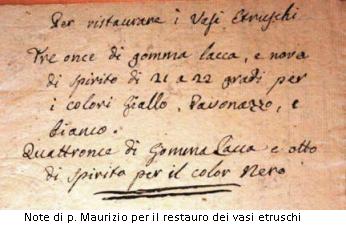 Per ristaurare i Vasi Etruschi
Tre once di gomma lacca, e nova
di spirito di 21 a 22 gradi per
i colori giallo, Pavonazzo, e
bianco.
Quattronce di Gomma Lacca e otto
di spirito per il color Nero
Note di p. Maurizio per il restauro dei vasi etruschi